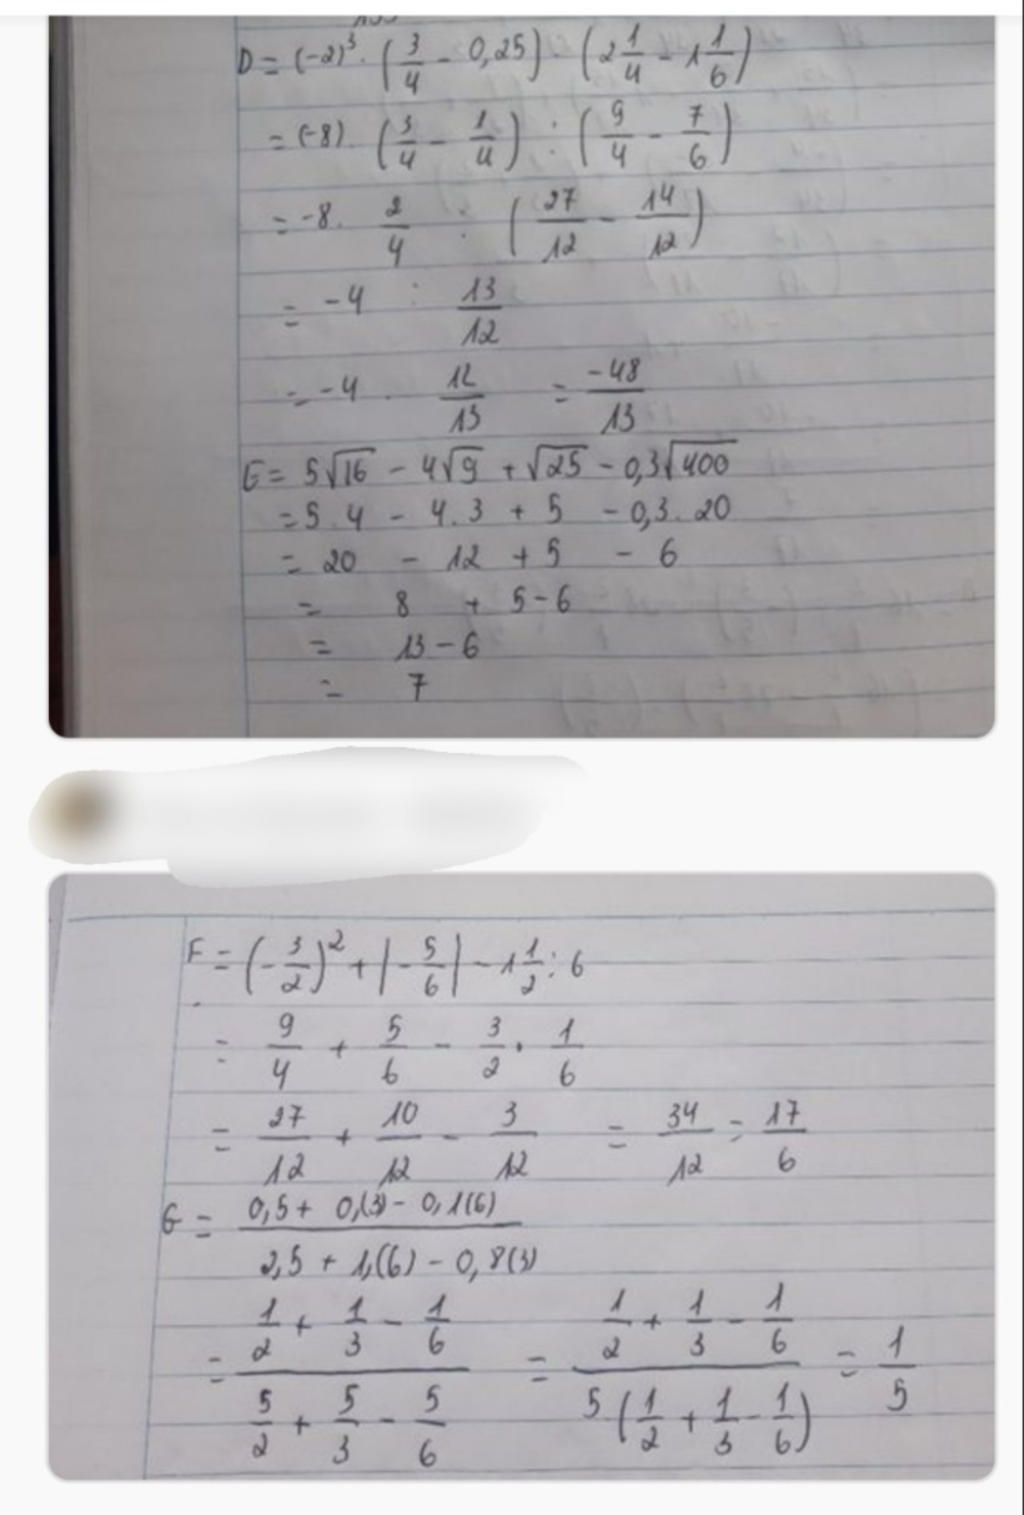 D = (-2)³ · (3/4 - 0,25) : (2 1/4 - 1 1/6)
= (-8) · (3/4 - 1/4) : (9/4 - 7/6)
= -8 · 2/4 : (27/12 - 14/12)
= -4 : 13/12
= -4 · 12/13 = -48/13
E = 5√16 - 4√9 + √25 - 0,3√400
= 5.4 - 4.3 + 5 - 0,3.20
= 20 - 12 + 5 - 6
= 8 + 5 - 6
= 13 - 6
= 7
F = (-3/2)² + |-5/6| - 1 1/2 : 6
= 9/4 + 5/6 - 3/2 · 1/6
= 27/12 + 10/12 - 3/12 = 34/12 = 17/6
G = (0,5 + 0,(3) - 0,1(6)) / (2,5 + 1,(6) - 0,8(3))
= (1/2 + 1/3 - 1/6) / (5/2 + 5/3 - 5/6) = (1/2 + 1/3 - 1/6) / (5 (1/2 + 1/3 - 1/6)) = 1/5